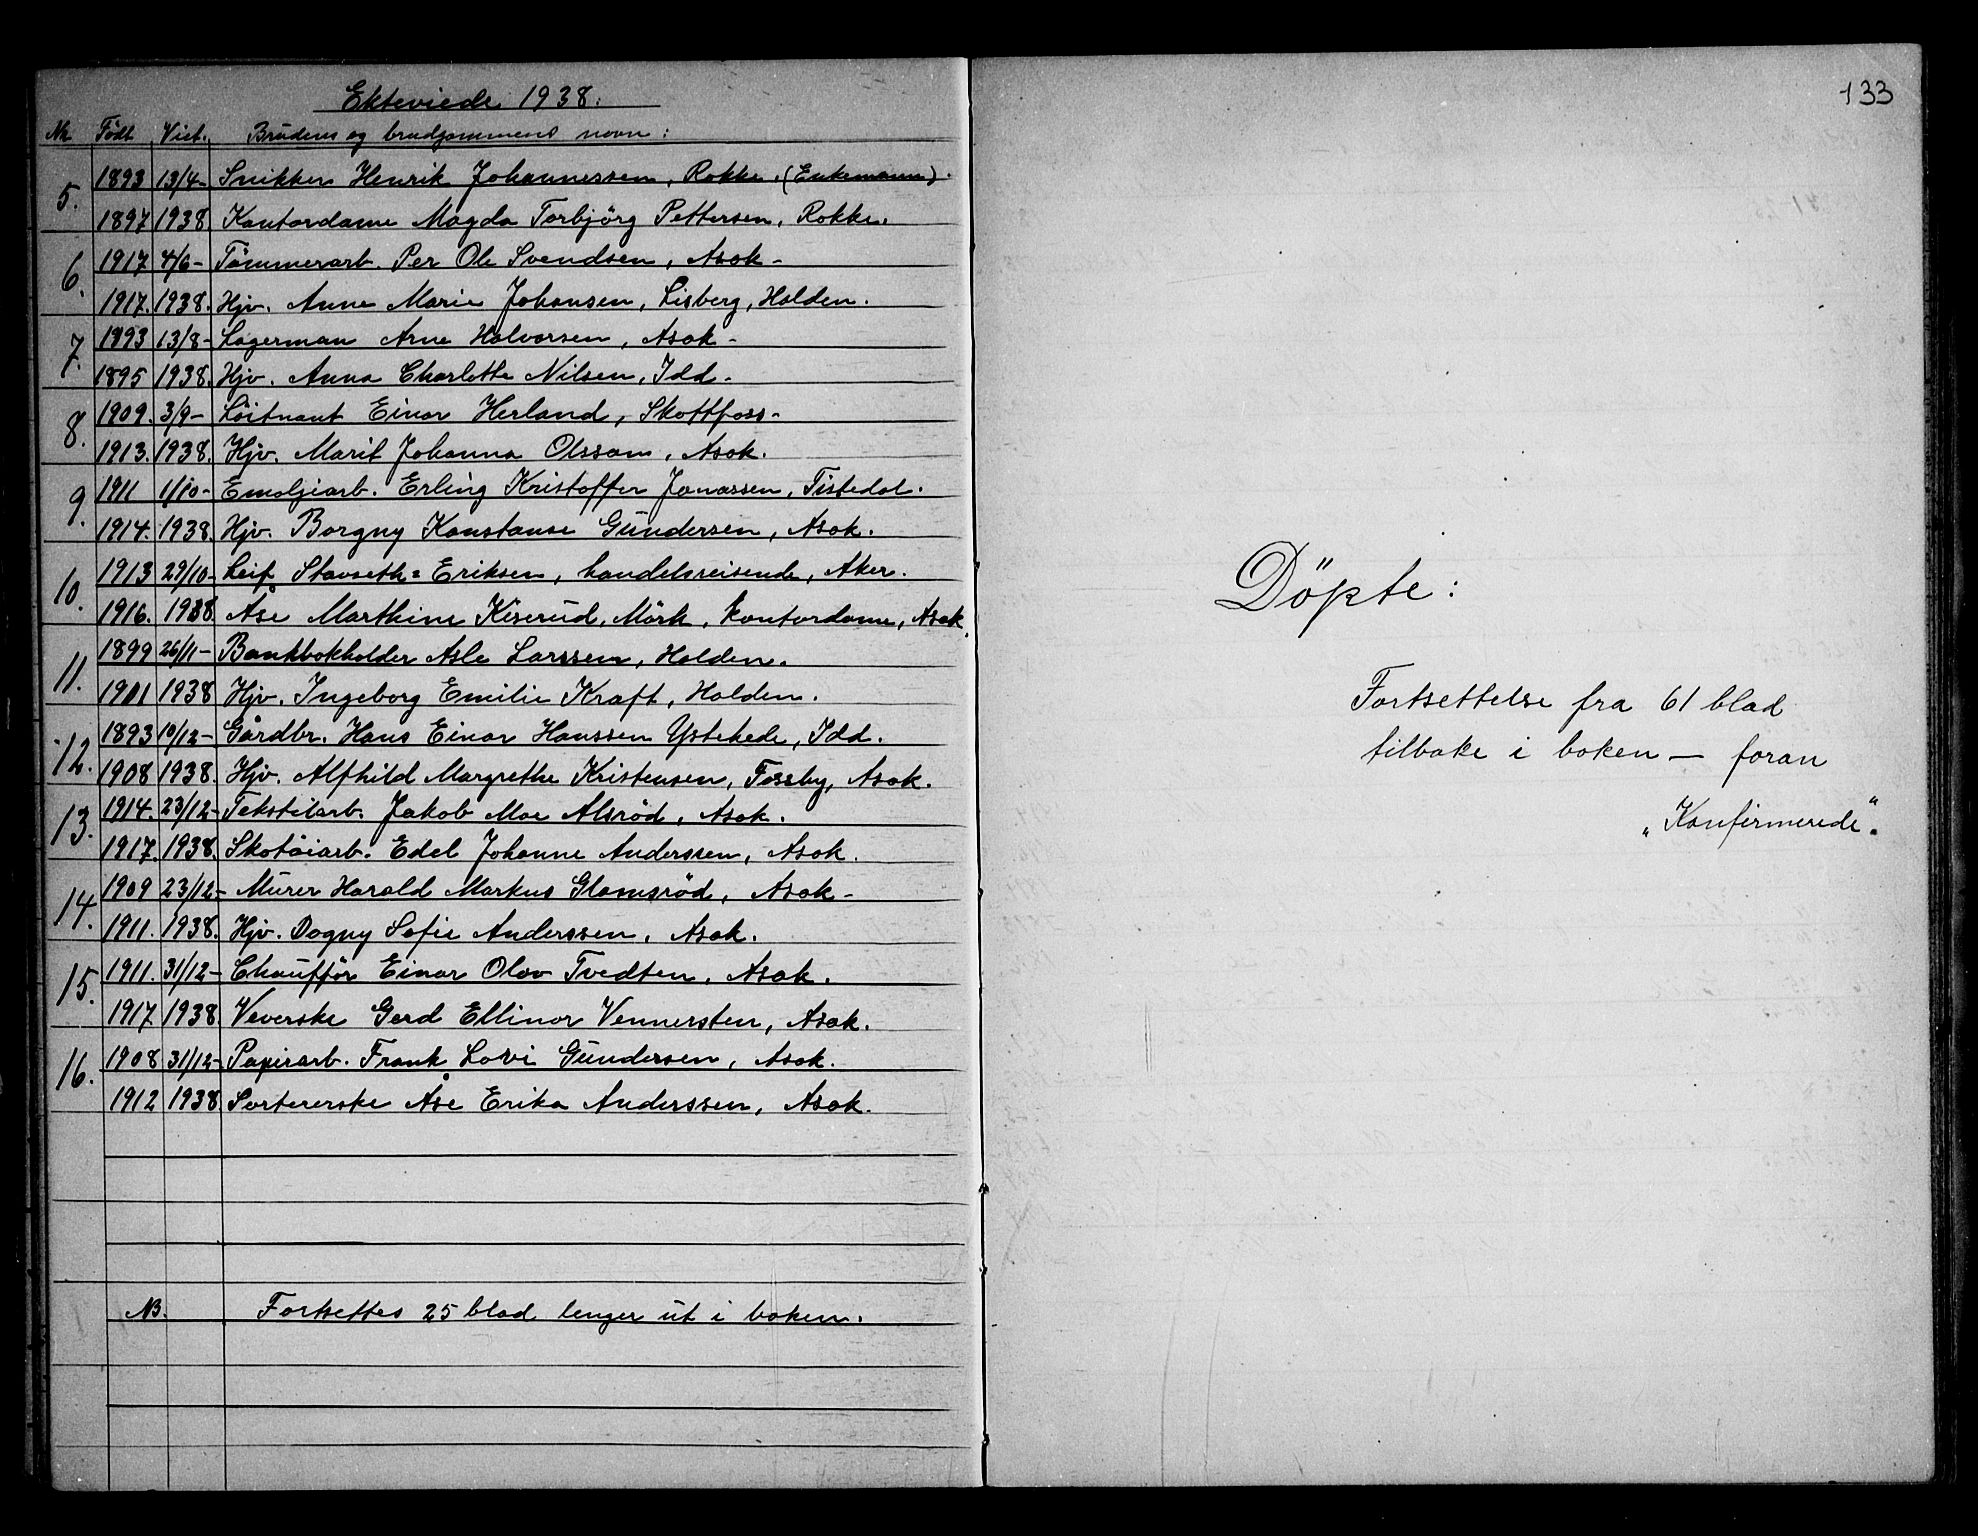 Ekteviede 1938.
Nr. Født Viet. Brudens og brudgommens navn:
5. 1893 13/4- Snikker Henrik Johannessen, Rokke. (Enkemann).
1897 1938. Kontordame Magda Torbjörg Pettersen, Rokke.
6. 1917 4/6- Tømmerarb. Per Ole Svendsen, Asak-
1917. 1938. Hjv. Anne Marie Johansen, Lisberg, Halden.
7. 1893 13/8- Lagerman Arne Halvorsen, Asak-
1895 1938. Hjv. Anna Charlotte Nilsen, Idd-
8. 1909. 3/9- Löitnant Einar Herland, Skottfoss-
1913. 1938. Hjv. Marit Johanna Olsson, Asak.
9. 1911 1/10- Emaljearb. Erling Kristoffer Jonassen, Tistedal.
1914. 1938. Hjv. Borgny Konstanse Gundersen, Asak.
10. 1913 29/10- Leif Stavseth=Eriksen, handelsreisende, Aker.
1916. 1938 Åse Marthine Kiserud, Mörk, kontordame, Asak.
11. 1899 26/11- Bankbokholder Asle Larssen, Halden.
1901 1938 Hjv. Ingeborg Emilie Kraft, Halden.
12. 1893 10/12- Gårdbr. Hans Einar Hanssen Ystehede, Idd.
1908 1938. Hjv. Alfhild Margrethe Kristensen, Fossby, Asak.
13. 1914. 23/12- Tekstilarb. Jakob Moe Alsrød, Asak.
1917. 1938. Skotöiarb. Edel Johanne Anderssen, Asak.
14. 1909 23/12- Murer Harald Markus Glomsröd, Asak-
1911. 1938. Hjv. Dagny Sofie Anderssen, Asak.
15. 1911. 31/12- Chaufför Einar Olav Tvedten, Asak.
1917 1938. Veverske Gerd Ellinor Vennersten, Asak.
16. 1908 31/12- Papirarb. Frank Lovi Gundersen, Asak.
1912 1938 Sortererske Åse Erika Anderssen, Asak.
NB. Fortsettes 25 blad lenger ut i boken.
133
Döpte:
Fortsettelse fra 61 blad
tilbake i boken — foran
„Konfirmerede“.